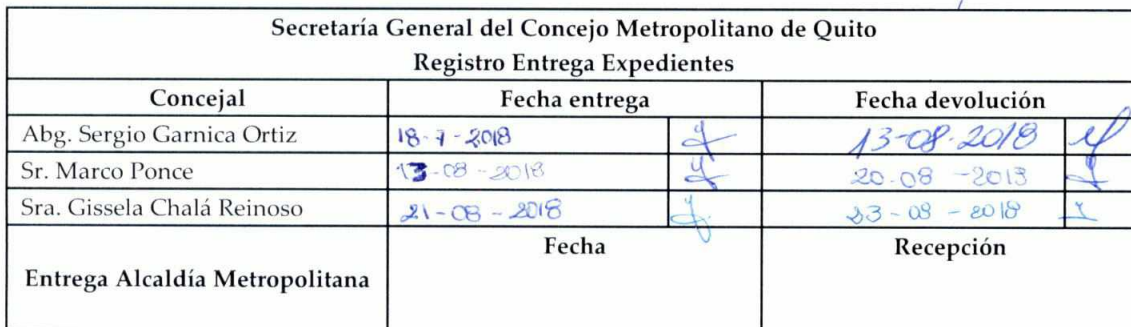 Secretaría General del Concejo Metropolitano de Quito
Registro Entrega Expedientes
Concejal Fecha entrega Fecha devolución
Abg. Sergio Garnica Ortiz 18-7-2018 13-08-2018
Sr. Marco Ponce 13-08-2018 20-08-2018
Sra. Gissela Chalá Reinoso 21-08-2018 23-08-2018
Fecha Recepción
Entrega Alcaldía Metropolitana